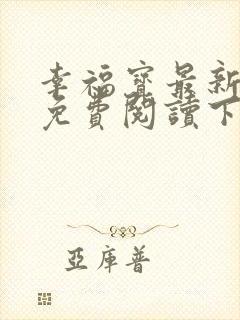 幸福寶最新
免費閱讀下
亞庫普